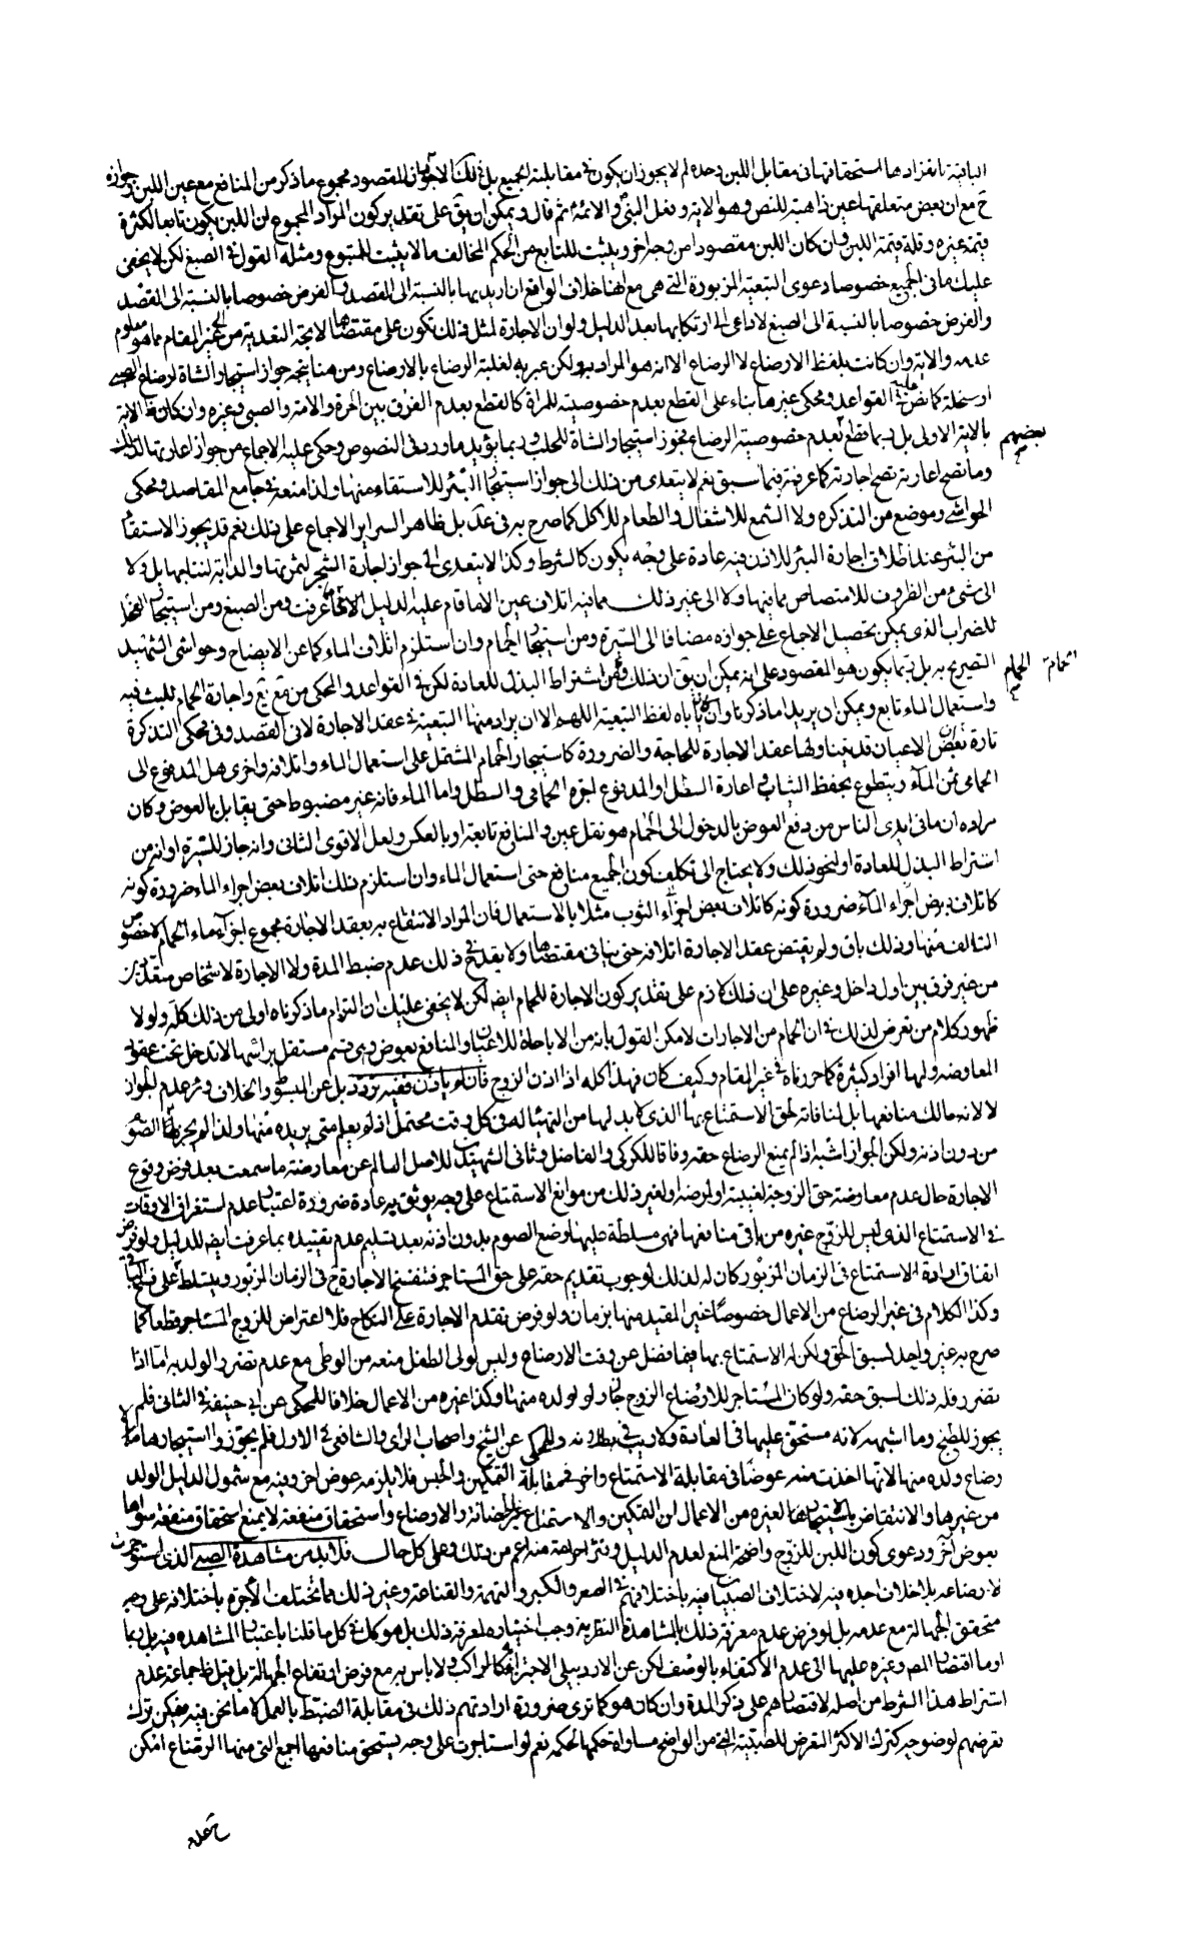 الباقية بانفرادها استحقاقها في مقابل اللبن وحده لم لا يجوز ان يكون في مقابلة الجميع بل في تلك الاحوال المقصود مجموع ما ذكر من المنافع مع عين اللبن وجوازه
ح مع ان بعض متعلقها عين ذاهبة للنص وهو الاية وفعل النبي والائمة ثم قال ويمكن ان يق على تقدير كون المراد المجموع ان اللبن يكون تابعا لكثرة
قيمة غيره وقلة قيمة اللبن وان كان اللبن مقصودا من وجه اخر ويثبت للتابع من الحكم المخالف ما لا يثبت للمتبوع ومثله القول في الصبغ لكن لا يخفى
عليك ما في الجميع خصوصا دعوى التبعية المزبورة التي هي مع انها خلاف الواقع ان اريد بها بالنسبة الى القصد والغرض خصوصا بالنسبة الى القصد
والغرض خصوصا بالنسبة الى الصبغ لا داعي الى ارتكابها بعد الدليل ولو ان الاجارة لمثل ذلك تكون على مقتضاها لا يتجه التعدية من الى غير المقام مما هو معلوم
عدمه والاية وان كانت بلفظ الارضاع لا الرضاع الا انه هو المراد به ولكن عبر به لغلبة الرضاع بالارضاع ومن هنا يتجه جواز استيجار الشاة لرضاع الصبي
او سخلة كما نص عليه في القواعد ومحكى غيرها بناء على القطع بعدم خصوصية للمراة كالقطع بعدم الفرق بين الحرة والامة والصبي وغيره وان كان في الاية
بالاية الاولى بل ربما قطع بعضهم بعدم خصوصية الرضاع فجوز استيجار الشاة للحلب وربما يؤيد ما ورد في النصوص وحكى عليه الاجماع من جواز اعارتها لذلك
وما تصح اعارته تصح اجارته كما عرفته فيما سبق نعم لا يتعدى من ذلك الى جواز استيجار البئر للاستقاء منها ولذا منعه في جامع المقاصد ومحكى
الحواشي وموضع من التذكرة ولا الشمع للاشعال والطعام للاكل كما صرح به في عد بل ظاهر السراير الاجماع على ذلك نعم قد يجوز الاستقاء
من البئر عند اطلاق اجارة البئر للاذن فيه عادة على وجه يكون كالشرط وكذا لا يتعدى الى جواز اجارة الشجر لثمرتها والدابة لنتاجها بل ولا
الى شيء من الظروف للامتصاص مما فيها ولا الى غير ذلك مما فيه اتلاف عين الا ما قام عليه الدليل كما عرفت ومن الصبغ ومن استيجار الفحل
للضراب الذي يمكن تحصيل الاجماع على جوازه مضافا الى السيرة ومن استيجار الحمام وان استلزم اتلاف الماء كما عن الايضاح وحواشي الشهيد
التصريح به بل ربما يكون هو المقصود على انه يمكن ان يق ان ذلك من اشتراط البذل للعادة لكن في القواعد والمحكى من مع واجارة الحمام للبث فيه
واستعمال الماء تابع ويمكن ان يريدا ما ذكرنا وان كان ياباه لفظ التبعية اللهم الا ان يراد منها التبعية في عقد الاجارة لا في القصد وفي محكى التذكرة
تارة بعض الاعيان قد يتناولها عقد الاجارة للحاجة والضرورة كاستيجار الحمام المشتمل على استعمال الماء واتلافه واخرى هل المدفوع الى
الحمامي ثمن الماء ويتطوع بحفظ الثياب واعارة السطل او المدفوع اجرة الحمامي والسطل واما الماء فانه غير مضبوط حتى يقابل بالعوض وكان
مراده ان ما في ايدي الناس من دفع العوض بالدخول الى الحمام هو نقل عين والمنافع تابعة او بالعكس ولعل الاقوى الثاني وانه جاز للسيرة او انه من
اشتراط البذل للعادة او لنحو ذلك ولا يحتاج الى تكلف كون الجميع منافع حتى استعمال الماء وان استلزم ذلك اتلاف بعض اجزاء الماء ضرورة كونه
كاتلاف بعض اجزاء الماء ضرورة كونه كاتلاف بعض اجزاء الثوب مثلا بالاستعمال فان المراد الانتفاع به بعقد الاجارة مجموع اجزاء ماء الحمام لا خصوص
التالف منها وذلك باق ولم يقتض عقد الاجارة اتلافه حتى ينافي مقتضاها ولا يقدح في ذلك عدم ضبط المدة ولا الاجارة لاشخاص متعددين
من غير فرق بين اول داخل وغيره على ان ذلك لازم على تقدير كون الاجارة للحمام ايضه لكن لا يخفى عليك ان التزام ما ذكرناه اولى من ذلك كله ولولا
ظهور كلام من تعرض لذلك في ان الحمام من الاجارات لامكن القول بانه من الاباحة للاعيان والمنافع بعوض وهي قسم مستقل براسها لا تدخل تحت عقود
المعاوضة ولها افراد كثيرة كما حررناه في غير المقام وكيف كان فهذا كله اذا اذن الزوج فان لم ياذن ففيه تردد بل عن المبسوط والخلاف وغيره عدم الجواز
لا لانه مالك منافعها بل لمنافاته لحق الاستمتاع بها الذي لا بد لها من التهيئة له في كل وقت محتمل اذ لم يعلم متى يريده منها ولذا لم يجز لها الصوم
من دون اذنه ولكن الجواز اشبه اذا لم يمنع الرضاع حقه وفاقا للكركي والفاضل وثاني الشهيدين للاصل السالم عن معارضة ما سمعت بعد فرض وقوع
الاجارة حال عدم معاوضة حق الزوجة لغيبته او لمرضه او لغير ذلك من موانع الاستمتاع على وجه يوثق به عادة ضرورة اعتبار عدم استغراق الاوقات
في الاستمتاع الذي ليس للزوج غيره من باقي منافعها فهي مسلطة عليها ومنع الصوم بدون اذنه بعد تسليم عدم تقييده بما عرفت ايضه للدليل ولو فرض
اتفاق ارادة الاستمتاع في الزمان المزبور كان له ذلك لوجوب تقديم حقه على حق المستاجر فتنفسخ الاجارة ح في الزمان المزبور ويتسلط على فسخ الباقي
وكذا الكلام في غير الرضاع من الاعمال خصوصا غير المقيد منها بزمان ولو فرض تقدم الاجارة على النكاح فلا اعتراض للزوج على المستاجر قطعا كما
صرح به غير واحد لسبق الحق ولكن له الاستمتاع بها فيما فضل عن وقت الارضاع وليس لولي الطفل منعه من الوطي مع عدم تضرر الولد به اما اذا
تضرر فله ذلك لسبق حقه ولو كان المستاجر للارضاع الزوج جاز ولو لولده منها وكذا غيره من الاعمال خلافا للمحكى عن ابي حنيفة في الثاني فلم
يجوز للطبخ وما اشبهه لانه مستحق عليها في العادة ولا ريب في بطلانه وللمحكى عن الشيخ واصحاب الراى والشافعي في الاول فلم يجوزوا استيجارها على
رضاع ولده منها لانها اخذت منه عوضا في مقابلة الاستمتاع واخر في مقابلة التمكين والحبس فلا يلزمه عوض اخر وفيه مع شمول الدليل الولد
من غيرها والانتقاض باستيجارها لغيره من الاعمال ان التمكين والاستمتاع غير الحضانة والارضاع واستحقاق منفعة لا يمنع استحقاق منفعة سواها
بعوض آخر ودعوى كون اللبن للزوج واضحة المنع لعدم الدليل ونشر الحرمة منه اعم من ذلك وعلى كل حال فلا بد من مشاهدة الصبي الذي استوجرت
لارضاعه بلا خلاف اجده فيه لاختلاف الصبيان فيه باختلافهم في الصغر والكبر والنهمة والقناعة وغير ذلك مما تختلف الاجرة باختلافه على وجه
متحقق الجهالة مع عدمه بل لو فرض عدم معرفة ذلك بالمشاهدة التقريبية وجب اختياره لمعرفة ذلك بل هو كل في كل ما قلنا باعتبار المشاهدة فيه بل ربما
اوما اقتصار المص وغيره عليها الى عدم الاكتفاء بالوصف لكن عن الاردبيلي الاجتزاء به كالراكب ولا باس به مع فرض ارتفاع الجهالة بل قيل ظ جماعة عدم
اشتراط هذا الشرط من اصله لاقتصارهم على ذكر المدة وان كان هو كما ترى ضرورة ارادتهم ذلك في مقابلة الضبط بالعمل لا ما نحن فيه فيمكن ترك
تعرضهم لوضوحه كترك الاكثر التعرض للصبية التي من الواضح مساواة حكمها لحكمه نعم لو استاجرت على وجه يستحق منافعها اجمع التي منها الارضاع امكن